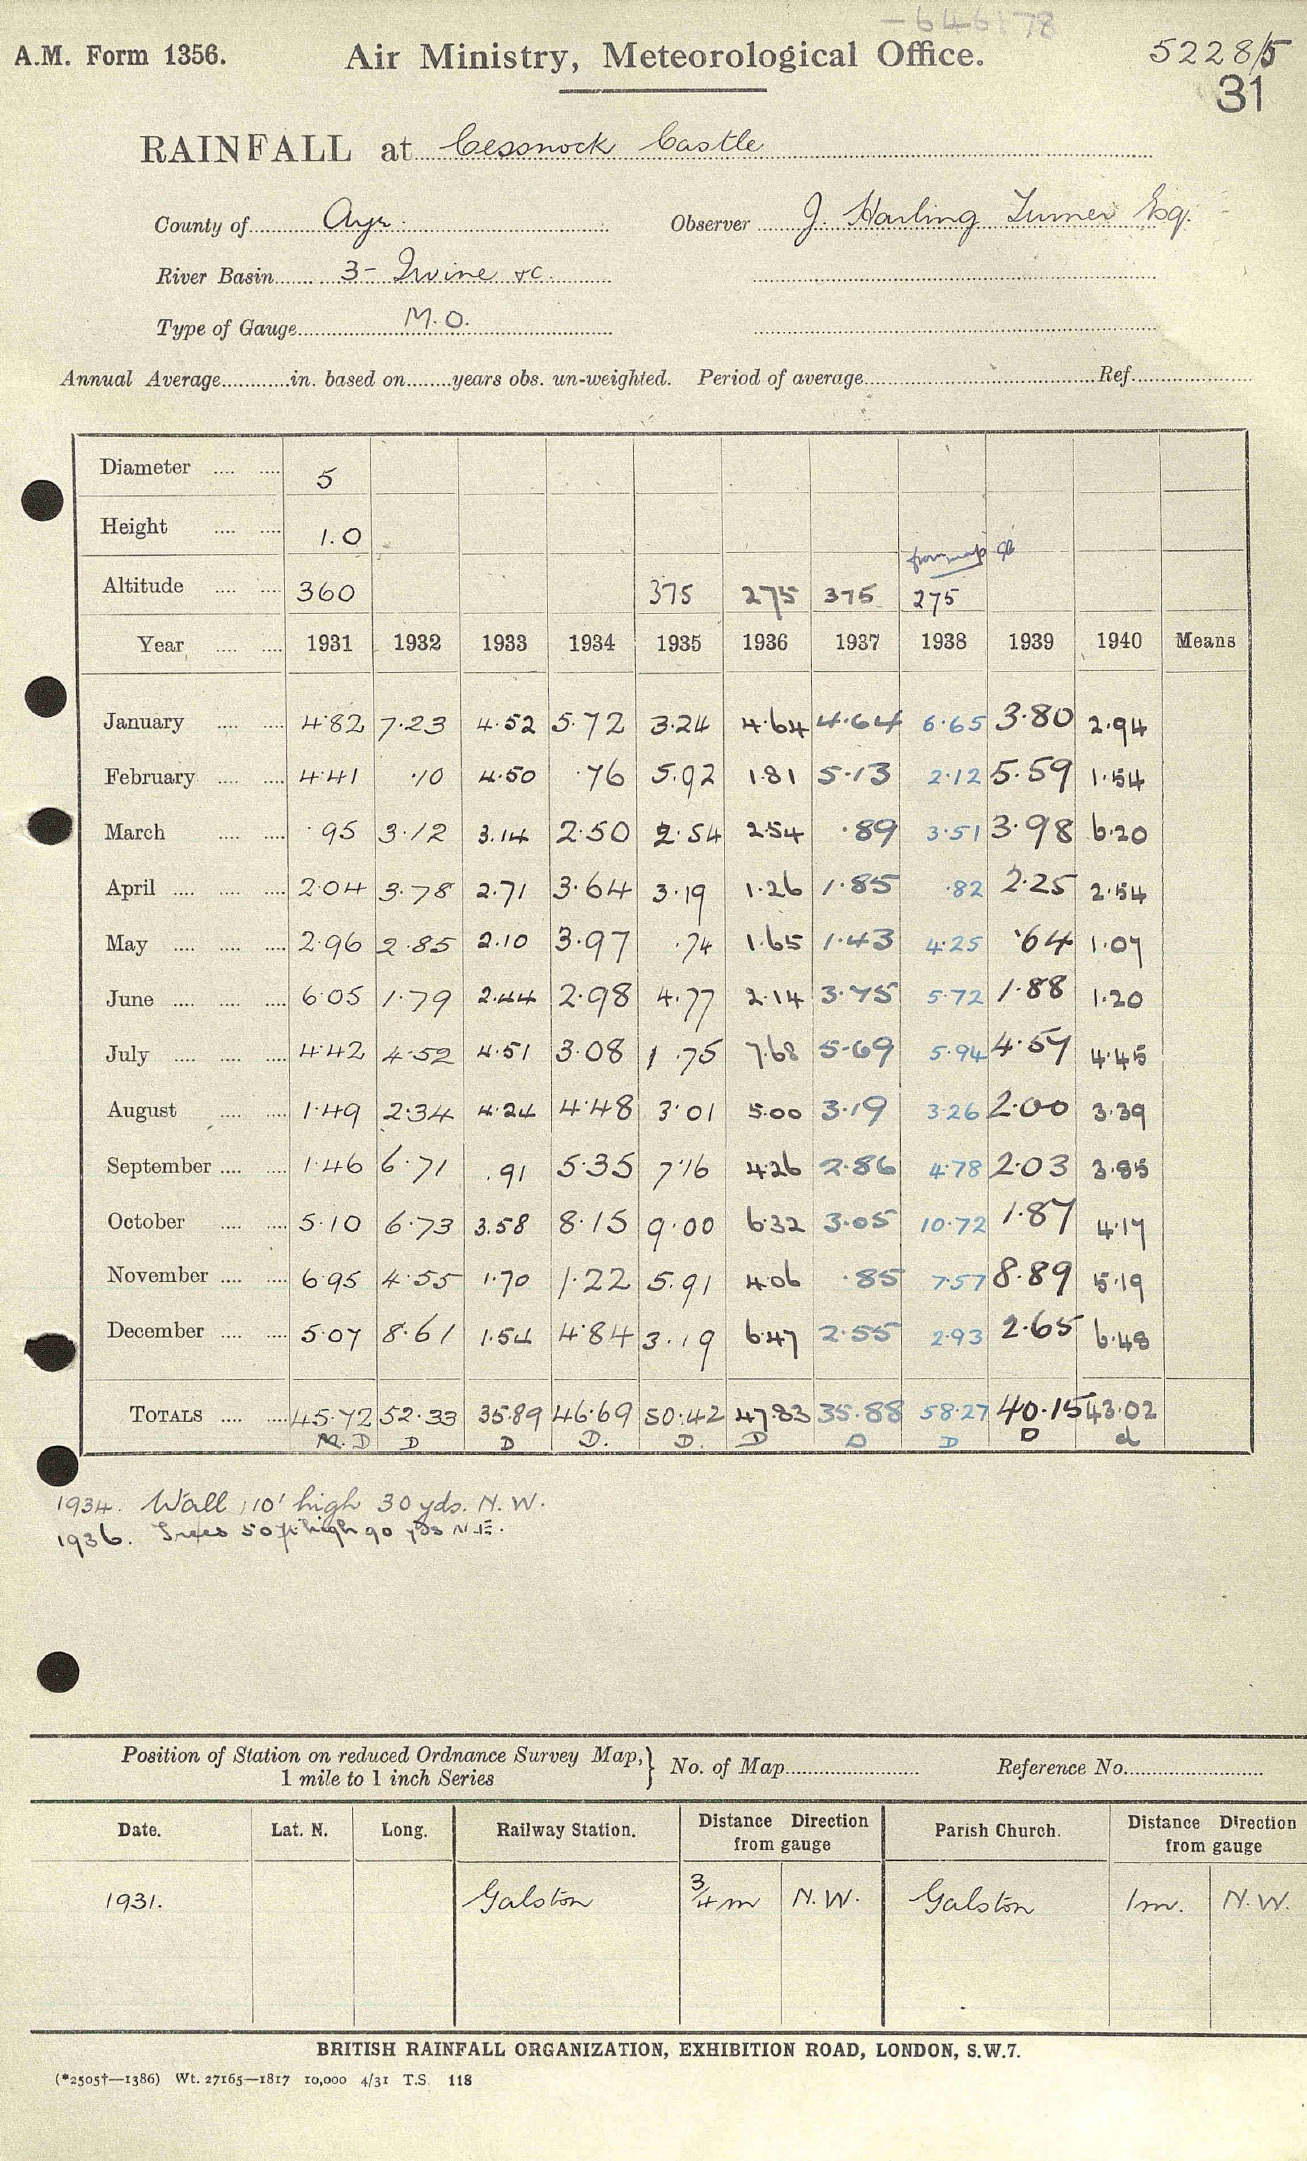 -646178
A.M. Form 1356. Air Ministry, Meteorological Office. 5228/5
31
RAINFALL at Cessnock Castle
County of Ayr. Observer J. Harling Turner Esq.
River Basin 3- Irvine &c.
Type of Gauge M.O.
Annual Average in. based on years obs. un-weighted. Period of average Ref.
Diameter 5
Height 1.0
from map
Altitude 360 375 275 375 275
Year 1931 1932 1933 1934 1935 1936 1937 1938 1939 1940 Means
January 4.82 7.23 4.52 5.72 3.24 4.64 4.64 6.65 3.80 2.94
February 4.41 .10 4.50 .76 5.92 1.81 5.13 2.12 5.59 1.54
March .95 3.12 3.14 2.50 2.54 2.54 .89 3.51 3.98 6.20
April 2.04 3.78 2.71 3.64 3.19 1.26 1.85 .82 2.25 2.54
May 2.96 2.85 2.10 3.97 .74 1.65 1.43 4.25 .64 1.07
June 6.05 1.79 2.44 2.98 4.77 2.14 3.75 5.72 1.88 1.20
July 4.42 4.52 4.51 3.08 1.75 7.68 5.69 5.94 4.57 4.45
August 1.49 2.34 4.24 4.48 3.01 5.00 3.19 3.26 2.00 3.39
September 1.46 6.71 .91 5.35 7.16 4.26 2.86 4.78 2.03 3.85
October 5.10 6.73 3.58 8.15 9.00 6.32 3.05 10.72 1.87 4.17
November 6.95 4.55 1.70 1.22 5.91 4.06 .85 7.57 8.89 5.19
December 5.07 8.61 1.54 4.84 3.19 6.47 2.55 2.93 2.65 6.48
TOTALS 45.72 52.33 35.89 46.69 50.42 47.83 35.88 58.27 40.15 43.02
M.D D D D. D. D D D D d
1934. Wall 10' high 30 yds. N.W.
1936. Trees 50ft high 90 yds N.E.
Position of Station on reduced Ordnance Survey Map, 1 mile to 1 inch Series } No. of Map Reference No.
Date. Lat. N. Long. Railway Station. Distance Direction from gauge Parish Church. Distance Direction from gauge
1931. Galston 3/4 m N.W. Galston 1m. N.W.
BRITISH RAINFALL ORGANIZATION, EXHIBITION ROAD, LONDON, S.W.7.
(*2505†—1386) Wt. 27165—1817 10,000 4/31 T.S. 118